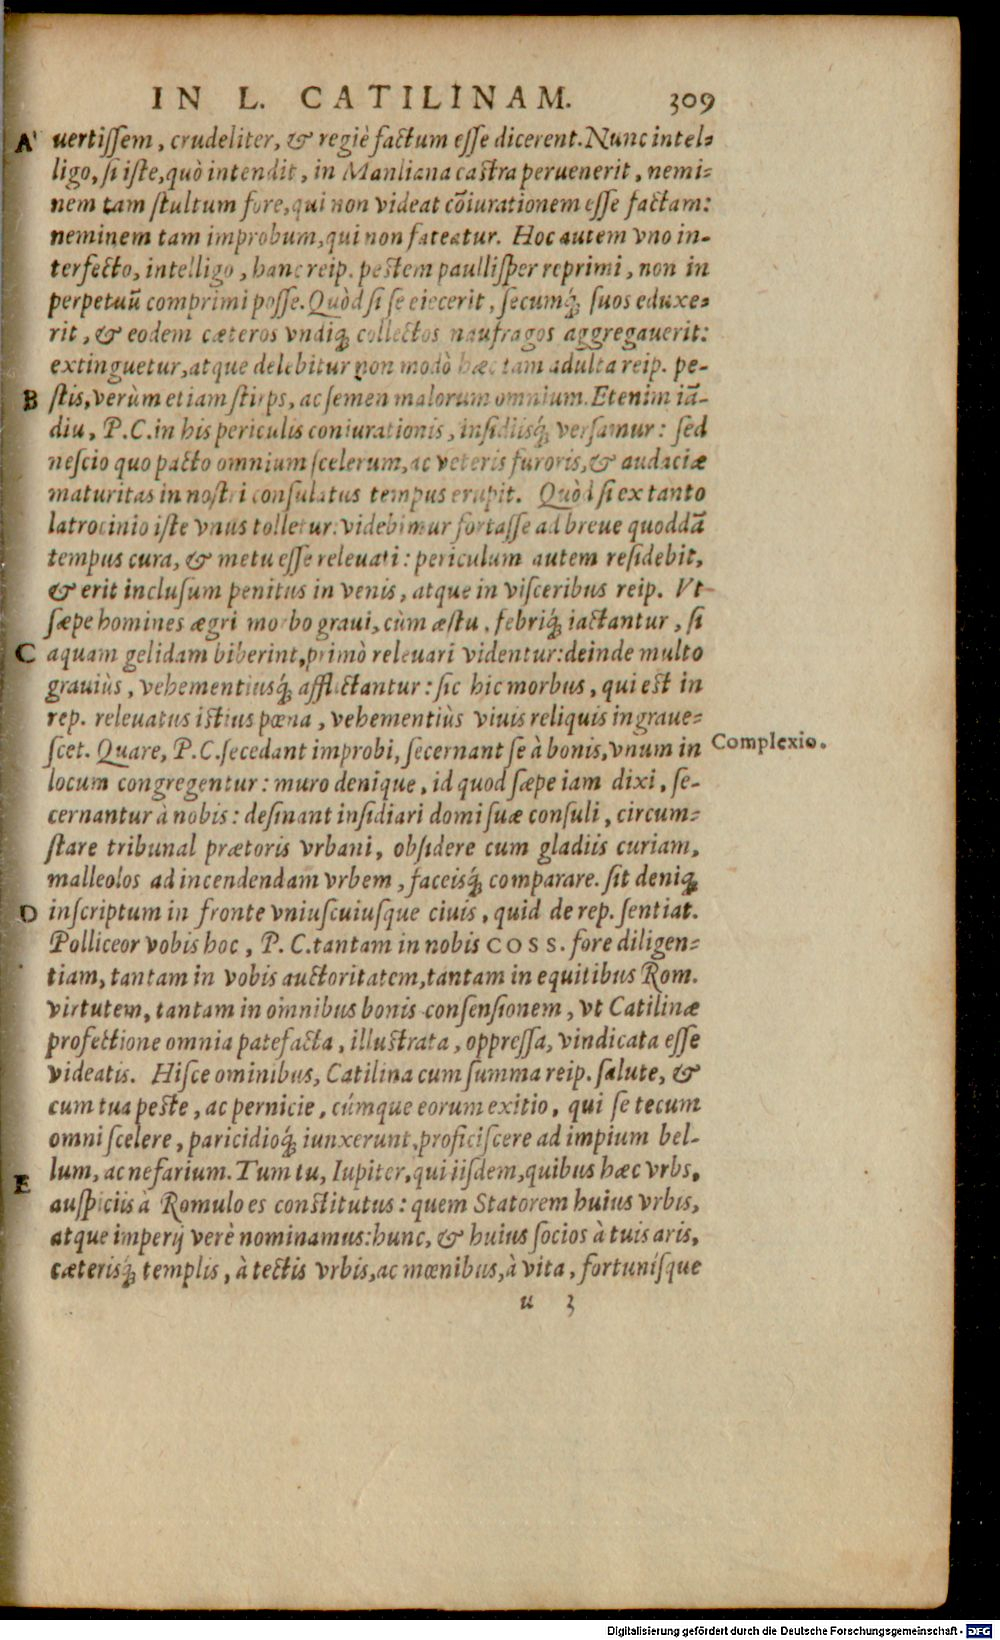 IN L. CATILINAM. 309
A uertissem, crudeliter, & regiè factum esse dicerent. Nunc intel-
ligo, si iste, quò intendit, in Manliana castra peruenerit, nemi-
nem tam stultum fore, qui non videat cōiurationem esse factam:
neminem tam improbum, qui non fateatur. Hoc autem vno in-
terfecto, intelligo, hanc reip. pestem paullisper reprimi, non in
perpetuū comprimi posse. Quòd si se eiecerit, secumq́; suos eduxe-
rit, & eodem cæteros vndiq; collectos naufragos aggregauerit:
extinguetur, atque delebitur non modò hæc tam adulta reip. pe-
B stis, verùm etiam stirps, ac semen malorum omnium. Etenim iā-
diu, P. C. in his periculis coniurationis, insidiisq́; versamur: sed
nescio quo pacto omnium scelerum, ac veteris furoris, & audaciæ
maturitas in nostri consulatus tempus erupit. Quòd si ex tanto
latrocinio iste vnus tolletur: videbimur fortasse ad breue quoddā
tempus cura, & metu esse releuati: periculum autem residebit,
& erit inclusum penitus in venis, atque in visceribus reip. Vt
sæpe homines ægri morbo graui, cùm æstu, febriq́; iactantur, si
C aquam gelidam biberint, primò releuari videntur: deinde multo
grauiùs, vehementiusq́; afflictantur: sic hic morbus, qui est in
rep. releuatus istius pœna, vehementiùs viuis reliquis ingraue-
scet. Quare, P. C. secedant improbi, secernant se à bonis, vnum in
Complexio.
locum congregentur: muro denique, id quod sæpe iam dixi, se-
cernantur à nobis: desinant insidiari domi suæ consuli, circum-
stare tribunal prætoris vrbani, obsidere cum gladiis curiam,
malleolos ad incendendam vrbem, faceisq́; comparare. sit deniq;
D inscriptum in fronte vniuscuiusque ciuis, quid de rep. sentiat.
Polliceor vobis hoc, P. C. tantam in nobis COSS. fore diligen-
tiam, tantam in vobis auctoritatem, tantam in equitibus Rom.
virtutem, tantam in omnibus bonis consensionem, vt Catilinæ
profectione omnia patefacta, illustrata, oppressa, vindicata esse
videatis. Hisce ominibus, Catilina cum summa reip. salute, &
cum tua peste, ac pernicie, cúmque eorum exitio, qui se tecum
omni scelere, paricidioq́; iunxerunt, proficiscere ad impium bel-
lum, ac nefarium. Tum tu, Iupiter, qui iisdem, quibus hæc vrbs,
E auspiciis à Romulo es constitutus: quem Statorem huius vrbis,
atque imperij verè nominamus: hunc, & huius socios à tuis aris,
cæterisq́; templis, à tectis vrbis, ac mœnibus, à vita, fortunísque
u 3
Digitalisierung gefördert durch die Deutsche Forschungsgemeinschaft - DFG